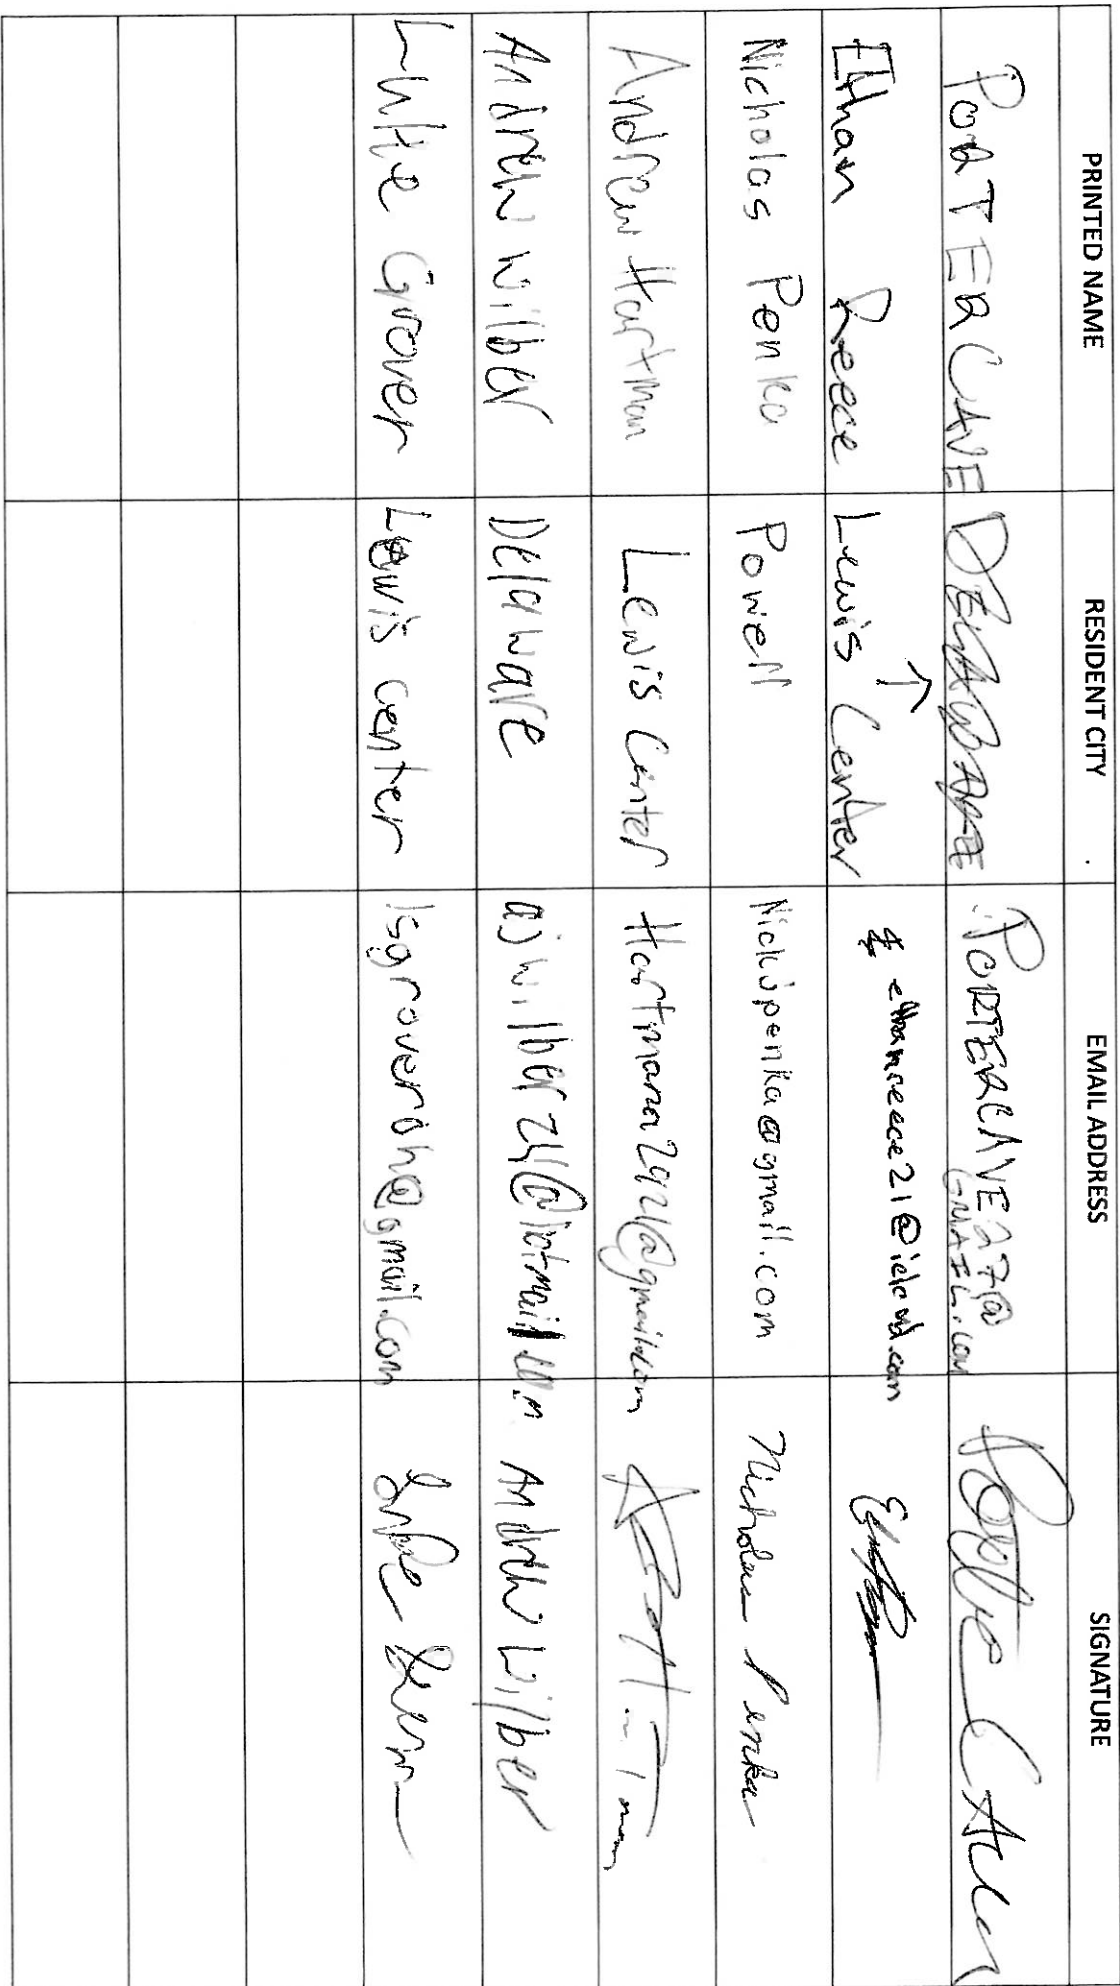 PRINTED NAME RESIDENT CITY EMAIL ADDRESS SIGNATURE
PORTER CAVE PORTERCAVE27@
GMAIL.COM
↑
Ethan Reece Lewis Center ethanreece21@icloud.com
Nicholas Penka Powell Nickjpenka@gmail.com Nicholas Penka
Andrew Hartman Lewis Center Hartmana2921@gmail.com
Andrew Wilber Delaware ajwilber24@hotmail.com Andrew Wilber
Luke Grover Lewis Center lsgroveroh@gmail.com